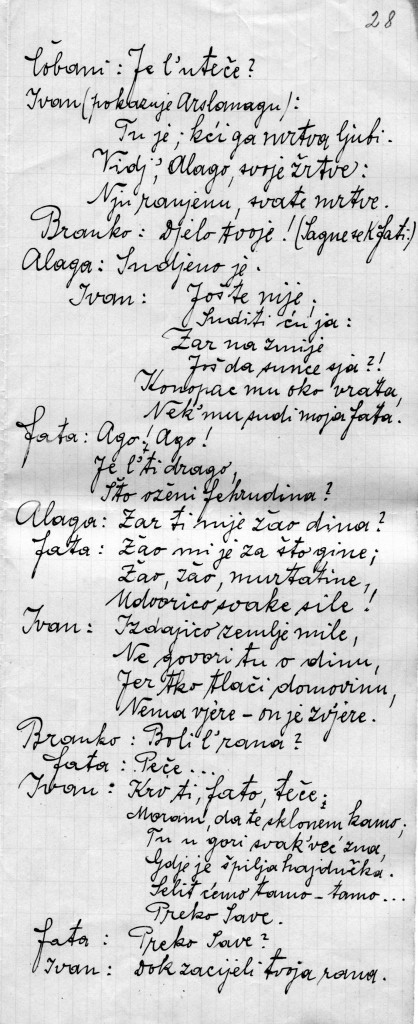 28
Čobani: Je l' uteče?
Ivan (pokazuje Arslanagu):
Tu je; kći ga mrtva ljubi.
Vidj', Alago, svoje žrtve:
Nju ranjenu, svate mrtve.
Branko: Djelo tvoje! (Sagne se k fati.)
Alaga: Sudjeno je.
Ivan: Još te nije;
Suditi ću ja:
Zar na zmije
Još da sunce sja?!
Konopac mu oko vrata,
Nek' mu sudi moja fata.
fata: Ago! Ago!
Je l' ti drago,
Što oženi fehrudina?
Alaga: Zar ti nije žao dina?
fata: Žao mi je za što gine;
Žao, žao, murtatine,
Udvorico svake sile!
Ivan: Izdajico zemlje mile,
Ne govori tu o dinu,
Jer tko tlači domovinu,
Nema vjere – on je zvjere.
Branko: Boli l' rana?
fata: Peče...
Ivan: Krv ti, fato, teče;
Moram, da te sklonem kamo;
Tu u gori svak' već zna,
Gdje je špilja hajdučka.
Selit ćemo tamo – tamo...
Preko Save.
fata: Preko Save?
Ivan: Dok zacijeli tvoja rana.